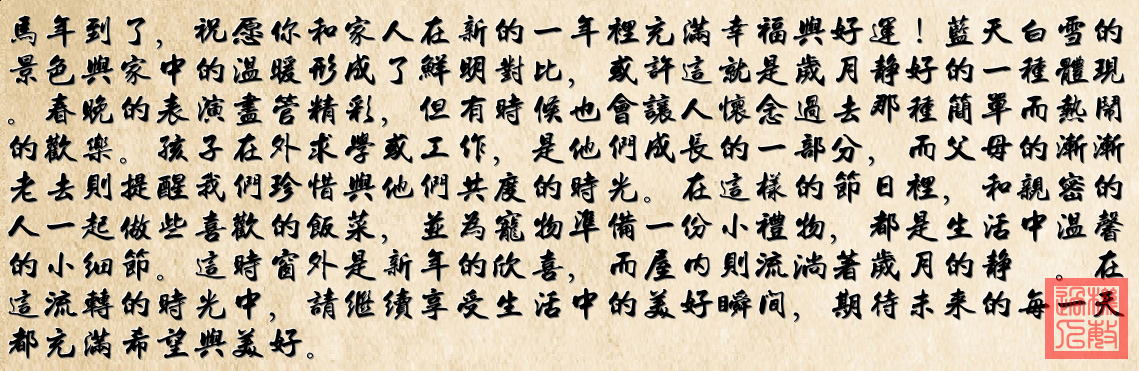 馬年到了，祝愿你和家人在新的一年裡充滿幸福與好運！藍天白雪的
景色與家中的溫暖形成了鮮明對比，或許這就是歲月静好的一種體現
。春晚的表演盡管精彩，但有時候也會讓人懷念過去那種簡單而熱鬧
的歡樂。孩子在外求學或工作，是他們成長的一部分，而父母的漸漸
老去則提醒我們珍惜與他們共度的時光。在這樣的節日裡，和親密的
人一起做些喜歡的飯菜，並為寵物準備一份小禮物，都是生活中溫馨
的小细節。這時窗外是新年的欣喜，而屋内則流淌著歲月的静 。在
這流轉的時光中，請继续享受生活中的美好瞬间，期待未来的每一天
都充滿希望與美好。